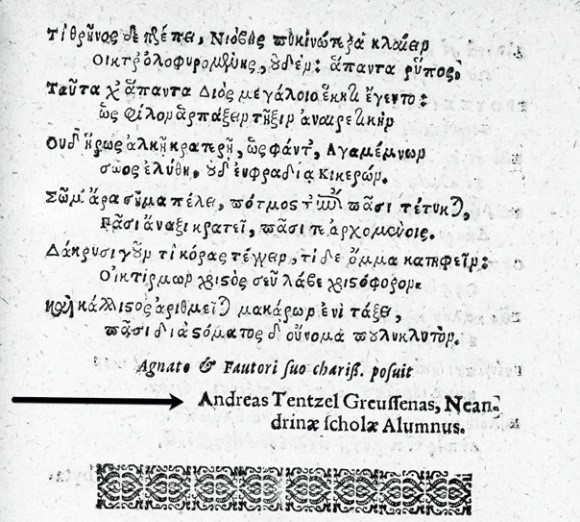 Τί θρῆνος δὲ πρέπει, Νιόβης πυκινώτερα κλαίειν
Οἰκτρ' ὀλοφυρομένης, οὐδέν: ἅπαντα ῥύπος,
Ταῦτα χ' ἅπαντα Διὸς μεγάλοιο ἕκητι ἔγεντο:
ὡς φίλον ἁρπάξειν τῆξιν
Οὐδ' ἥρως ἀλκῇ κρατερῇ, ὡς φάντ', Ἀγαμέμνων
σῶος ἐλύθη, οὐδ' εὐφραδίᾳ Κικερών.
Σῶμ' ἄρα σῆμα πέλει, πότμος πᾶσι τέτυκται,
Πᾶσι ἄναξι κρατεῖ, πᾶσί τ' ἀρχομένοις.
Δάκρυσι γοῦν τί κόρας τέγγειν, τί δὲ ὄμμα κατηφεῖν:
Οἰκτίρμων χριστὸς σεῦ λάβε χριστόφορον.
Καὶ κάλλιστος ἀριθμεῖται μακάρων ἐνὶ τάξει,
πᾶσι διὰ στόματος δ' οὔνομα πουλυκλυτόν.
Agnato & Fautori suo chariß. posuit
Andreas Tentzel Greussenas, Nean-
drinæ scholæ Alumnus.